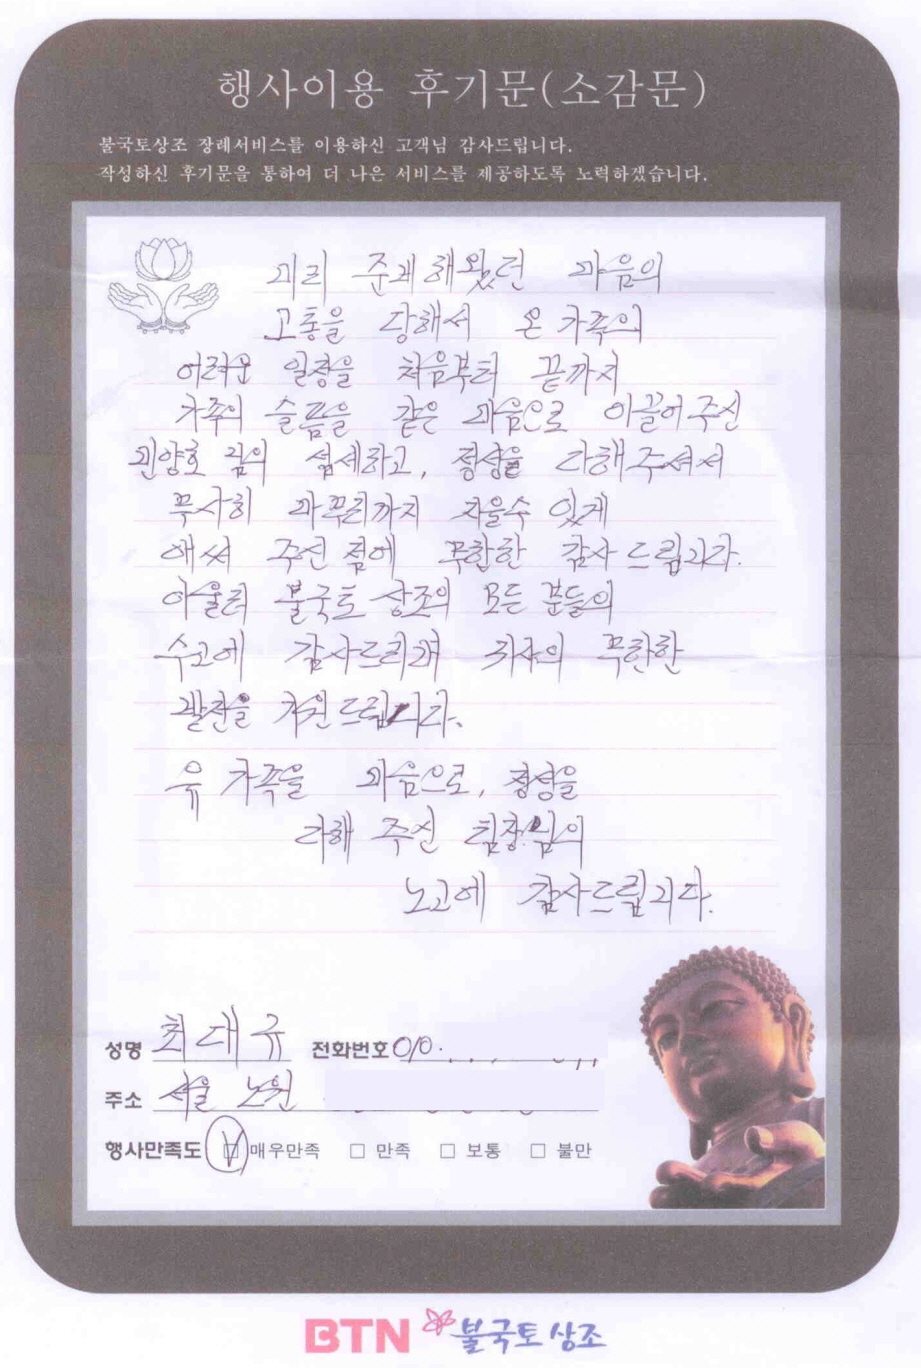 행사이용 후기문(소감문)
불국토상조 장례서비스를 이용하신 고객님 감사드립니다.
작성하신 후기문을 통하여 더 나은 서비스를 제공하도록 노력하겠습니다.
미리 준비해왔던 마음의
고통을 당해서 온 가족의
어려운 일정을 처음부터 끝까지
가족의 슬픔을 같은 마음으로 이끌어주신
민양호 님의 섬세하고, 정성을 다해주셔서
무사히 마무리까지 치울수 있게
애써 주신 점에 무한한 감사드립니다.
아울러 불국토 상조의 모든 분들의
수고에 감사드리며 귀사의 무한한
발전을 기원드립니다.
유가족을 마음으로, 정성을
다해 주신 팀장님의
노고에 감사드립니다.
성명 최대규 전화번호 010
주소 서울 노원
행사만족도 매우만족 만족 보통 불만
BTN 불국토상조